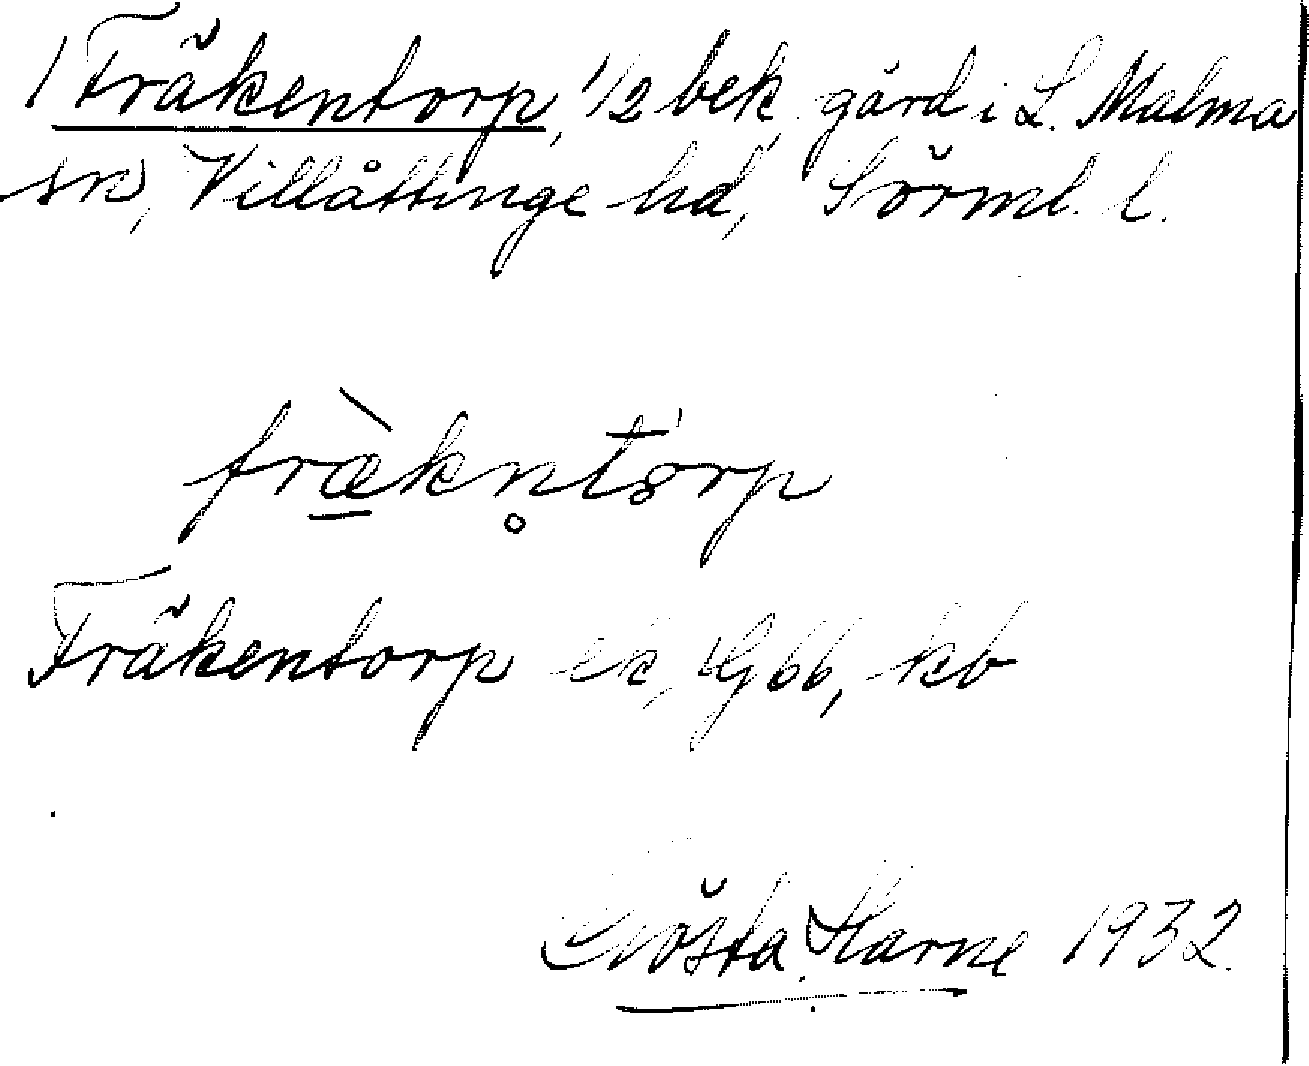 1 Fräkentorp, 1/2 bek. gård i L. Malma
sn, Villåttinge hd, Sörml. l.
fræ̀kn̥torp
Fräkentorp ek, Gbb, kb
Gösta Harne 1932.